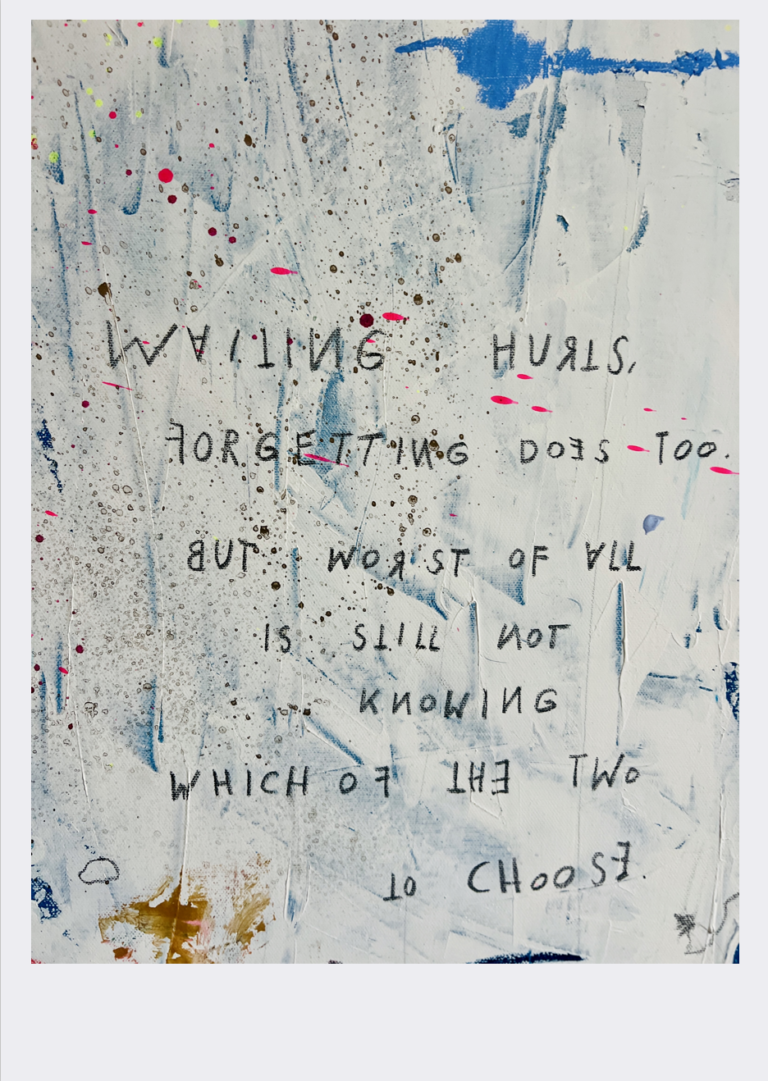 WAITING HURTS,
FORGETTING DOES TOO.
BUT WORST OF ALL
IS STILL NOT
KNOWING
WHICH OF THE TWO
TO CHOOSE.